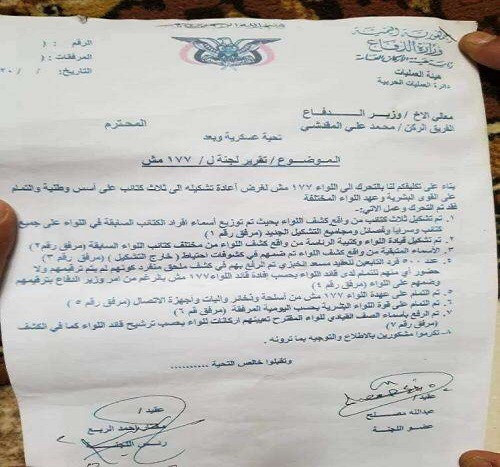 الجمهورية اليمنية
وزارة الدفاع
هيئة العمليات
دائرة العمليات الحربية
الرقم : (
المرفقات : (
التاريخ: / / ٢٠
معالي الاخ / وزير الـــدفـــاع
الفريق الركن / محمد علي المقدشي المحترم
تحية عسكرية وبعد
الموضوع / تقرير لجنة ل / ١٧٧ مش
بناء على تكليفكم لنا بالتحرك الى اللواء ١٧٧ مش لغرض أعادة تشكيله الى ثلاث كتائب على أسس وطنية والتمام
على القوى البشرية وعهد اللواء المختلفة
فقد تم التحرك وعمل الاتي:-
١. تم تشكيل ثلاث كتائب من واقع كشف اللواء بحيث تم توزيع أسماء افراد الكتائب السابقة في اللواء على جميع
كتائب وسرايا وفصائل ومجاميع التشكيل الجديد (مرفق رقم ١)
٢. تم تشكيل قيادة اللواء وكتيبة الرئاسة من واقع كشف اللواء من مختلف كتائب اللواء السابقة (مرفق رقم٢)
٣. الأسماء السابقة من واقع كشف اللواء تم ضمهم في كشوفات احتياط ( خارج التشكيل ) (مرفق رقم ٣)
٤. عدد ٥٠٠ فرد التابعين للعقيد مسعد إنخيزي تم الرفع بهم في كشف ملحق منفرد كونهم لم يتم ترقيمهم ولا
حضور أي منهم للتمام لدى قائد اللواء بحسب إفادة قائد اللواء ١٧٧ مش بالرغم من امر وزير الدفاع بترقيمهم
وضمهم على اللواء (مرفق رقم ٤)
٥. تم التمام على عهدة اللواء ١٧٧ مش من أسلحة وذخائر واليات واجهزة الاتصال (مرفق رقم ٥)
٦. تم التمام على قوة اللواء البشرية بحسب اليومية المرفقة (مرفق رقم ٦)
٧. تم الرفع بأسماء الصف القيادي للواء المقترح تعيينهم اركانات للواء بحسب ترشيح قائد اللواء كما في الكشف
(مرفق رقم ٧)
٨- تكرموا مشكورين بالاطلاع والتوجيه بما ترونه .
وتقبلوا خالص التحية ..........
عقيد/
عبدالله مصلح
عضو اللجنة
عقيد/
مختار احمد الربع
رئيس اللجنة